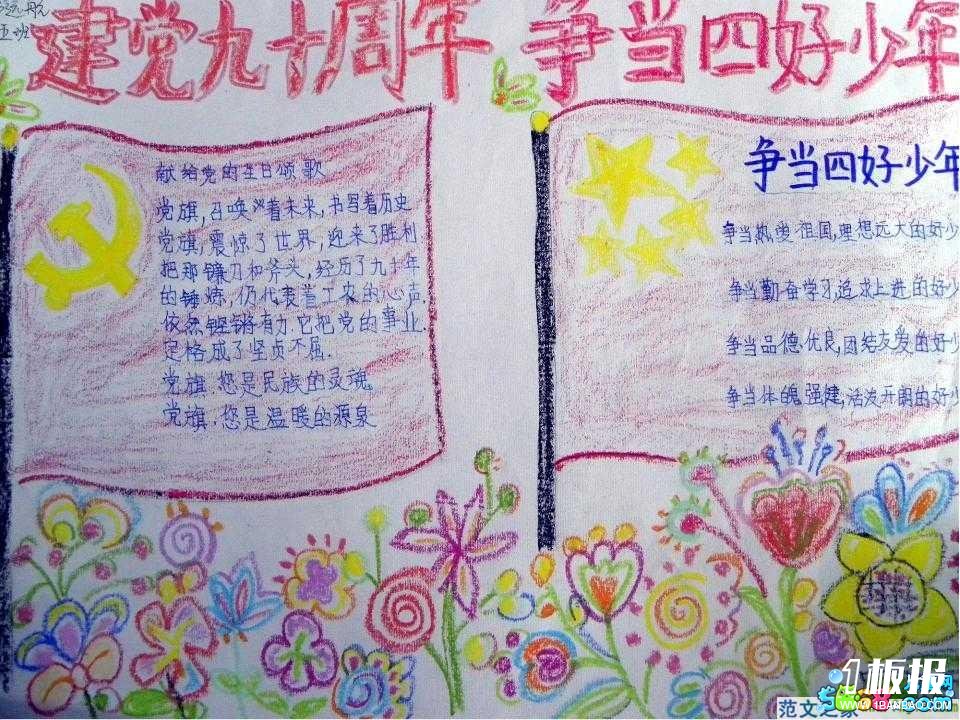 远航
五班
建党九十周年 争当四好少年
献给党的生日颂歌
党旗,召唤着未来,书写着历史
党旗,震惊了世界,迎来了胜利
把那镰刀和斧头,经历了九十年
的锤炼,仍代表着工农的心声.
依然铿锵有力.它把党的事业.
定格成了坚贞不屈.
党旗.您是民族的灵魂
党旗.您是温暖的源泉
争当四好少年
争当热爱祖国,理想远大的好少
争当勤奋学习,追求上进的好少
争当品德优良,团结友爱的好少
争当体魄强健,活泼开朗的好少
板报网
WWW.1BANBAO.COM
范文之家